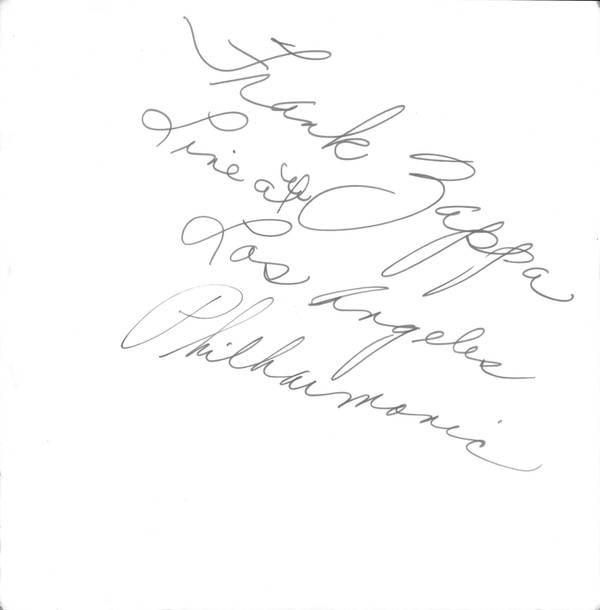 Frank Zappa
Live at
Los Angeles
Philharmonic